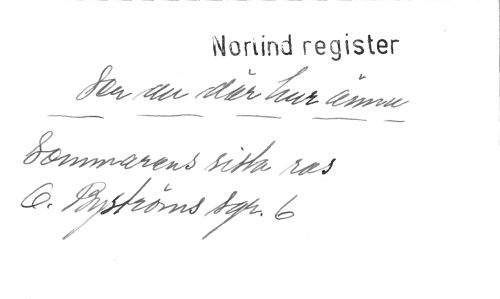 Norlind register
Ser du där hur ännu
Sommarens sista ros
O. Byströms sgr. 6